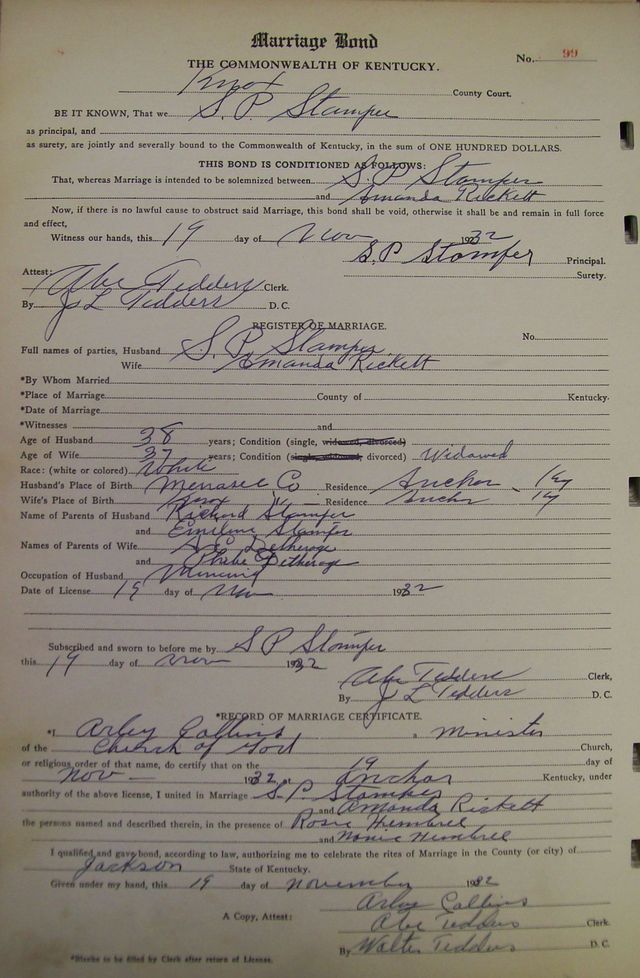 Marriage Bond
THE COMMONWEALTH OF KENTUCKY.
No. 99
Knox County Court.
BE IT KNOWN, That we S. P. Stamper
as principal, and
as surety, are jointly and severally bound to the Commonwealth of Kentucky, in the sum of ONE HUNDRED DOLLARS.
THIS BOND IS CONDITIONED AS FOLLOWS:
That, whereas Marriage is intended to be solemnized between S. P. Stamper
and Amanda Rickett
Now, if there is no lawful cause to obstruct said Marriage, this bond shall be void, otherwise it shall be and remain in full force
and effect,
Witness our hands, this 19 day of Nov 1932
S. P. Stamper Principal.
Surety.
Attest:
Abe Tedders Clerk.
By J L Tedders D. C.
REGISTER OF MARRIAGE.
No.
Full names of parties, Husband S. P. Stamper
Wife Amanda Rickett
*By Whom Married
*Place of Marriage County of Kentucky.
*Date of Marriage
*Witnesses and
Age of Husband 38 years; Condition (single, widowed, divorced)
Age of Wife 37 years; Condition (single, widowed, divorced) Widowed
Race: (white or colored) White
Husband's Place of Birth Menasee Co Residence Anchor - Ky
Wife's Place of Birth Knox Residence Anchor Ky
Name of Parents of Husband Richard Stamper
and Emiline Stamper
Names of Parents of Wife Detherage
and Phebe Detherage
Occupation of Husband Mining
Date of License 19 day of Nov 1932
Subscribed and sworn to before me by S P Stamper
this 19 day of Nov 1932
Abe Tedders Clerk,
By J L Tedders D. C.
*RECORD OF MARRIAGE CERTIFICATE.
*I Arley Collins a Minister
of the Church of God Church,
or religious order of that name, do certify that on the 19 day of
Nov - 1932 at Anchor Kentucky, under
authority of the above license, I united in Marriage S. P. Stamper
and Amanda Rickett
the persons named and described therein, in the presence of Rosie Hembree
and Nonie Hembree
I qualified and gave bond, according to law, authorizing me to celebrate the rites of Marriage in the County (or city) of
Jackson State of Kentucky.
Given under my hand, this 19 day of November 1932
Arley Collins
A Copy, Attest: Abe Tedders Clerk.
By Walter Tedders D. C.
*Blanks to be filled by Clerk after return of License.